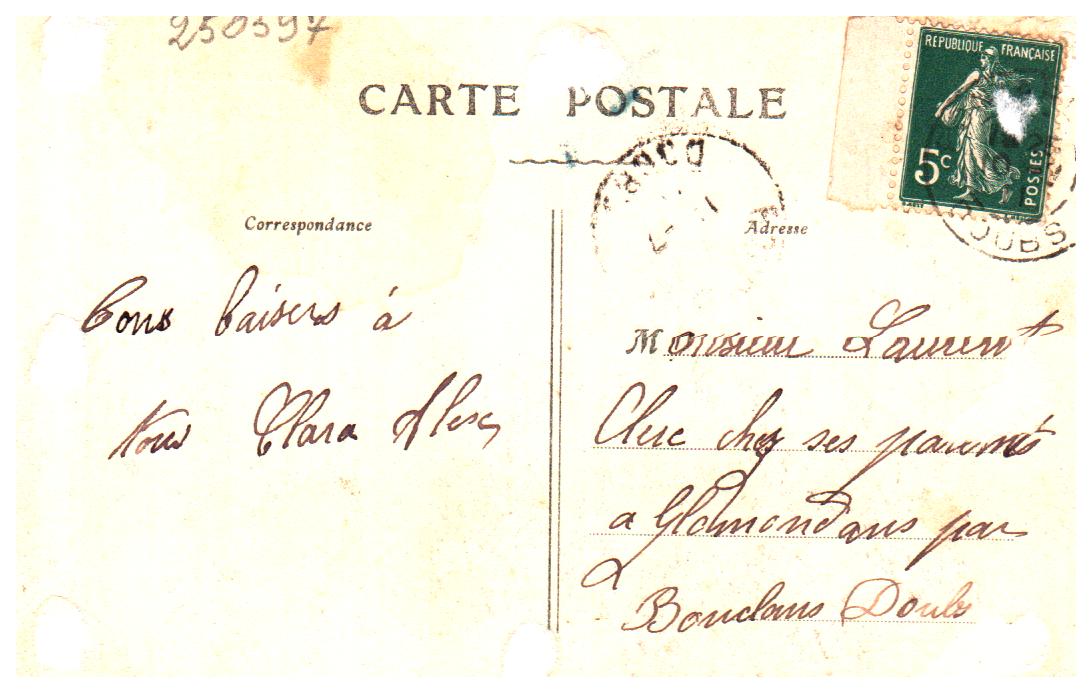 250397
CARTE POSTALE
REPUBLIQUE FRANÇAISE
5c
POSTES
DOUBS
DOUBS
Correspondance
Adresse
Bons baisers à
tous Clara
Monsieur Laurent
Clerc chez ses parents
a Glamondans par
Bouclans Doubs